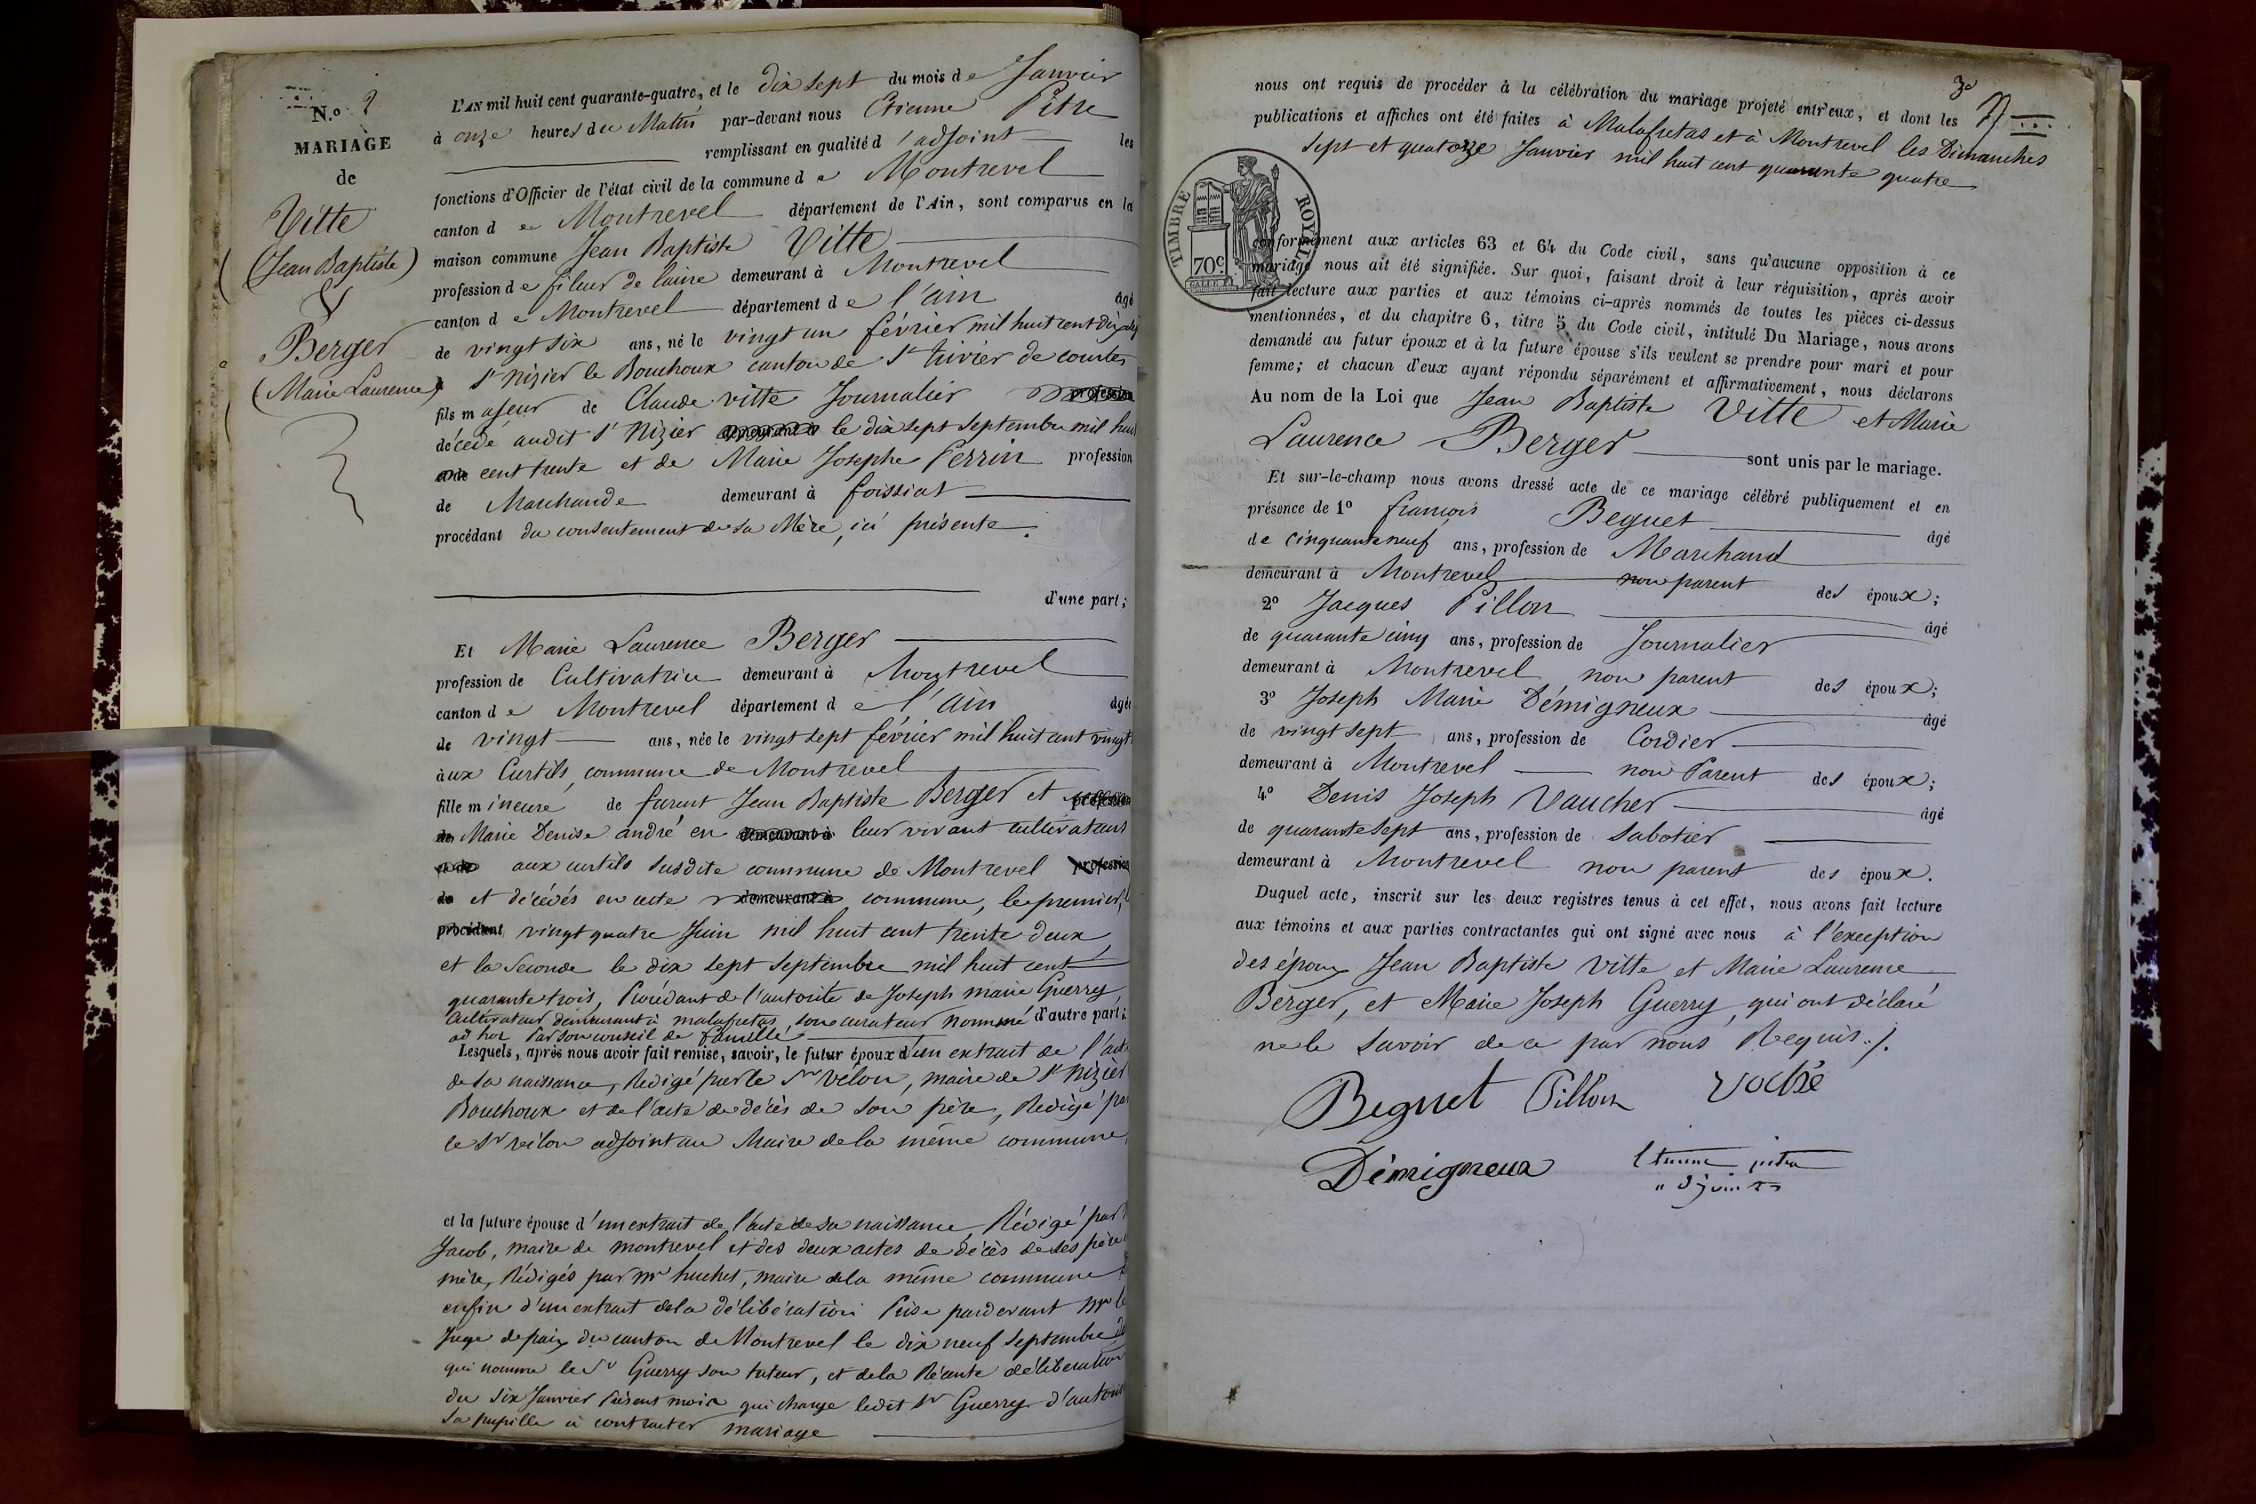 N.o 2
MARIAGE
de
Vitte
(Jean Baptiste)
&
Berger
(Marie Laurence)
L'AN mil huit cent quarante-quatre, et le dix sept du mois de Janvier
à onze heures du Matin par-devant nous Etienne Pitre
remplissant en qualité d'adjoint les
fonctions d'Officier de l'état civil de la commune de Montrevel
canton de Montrevel département de l'Ain, sont comparus en la
maison commune Jean Baptiste Vitte
profession de fileur de laine demeurant à Montrevel
canton de Montrevel département de l'ain âgé
de vingt six ans, né le vingt un février mil huit cent dix
à St Nizier le Bouchoux canton de St trivier de courtes
fils majeur de Claude vitte Journalier profession
décédé audit St Nizier demeurant à le dix sept Septembre mil huit
et de cent trente et de Marie Josephe Perrin profession
de Marchande demeurant à foissiat
procédant du consentement de sa Mère, ici présente.
d'une part;
Et Marie Laurence Berger
profession de Cultivatrice demeurant à Montrevel
canton de Montrevel département de l'ain âgée
de vingt ans, née le vingt sept février mil huit cent vingt
aux Curtils, commune de Montrevel
fille mineure de furent Jean Baptiste Berger et profession
de Marie Denise andré en demeurant à leur vivant cultivateurs
et de aux curtils susdite commune de Montrevel profession
de et décédés en cette demeurant à commune, le premier, le
procédant vingt quatre Juin mil huit cent trente deux,
et la Seconde le dix sept Septembre mil huit cent
quarante trois, Procédant de l'autorité de Joseph marie Guerry
Cultivateur demeurant à malafretas, son curateur nommé d'autre part;
ad hoc Par son conseil de famille
Lesquels, après nous avoir fait remise, savoir, le futur époux d'un extrait de l'acte
de sa naissance, Redigé par le Sr vélon, maire de St Nizier
Bouchoux et de l'acte de décès de son père, Redigé par
le Sr vélon adjoint au Maire de la même commune,
et la future épouse d'un extrait de l'acte de sa naissance, Rédigé par
Jacob, maire de montrevel et des deux actes de décès de ses père
mère, Rédigés par mr huchet, maire de la même commune
enfin d'un extrait de la délibération Prise pardevant Mr le
Juge de paix du canton de Montrevel le dix neuf Septembre
qui nomme le Sr Guerry son tuteur, et de la Récente délibération
du six Janvier Présent mois qui charge ledit Sr Guerry d'autoriser
sa pupille à contracter mariage
nous ont requis de procéder à la célébration du mariage projeté entr'eux, et dont les
publications et affiches ont été faites à Malafretas et à Montrevel les Dimanches
sept et quatorze Janvier mil huit cent quarante quatre
TIMBRE ROYAL
70c
conformément aux articles 63 et 64 du Code civil, sans qu'aucune opposition à ce
mariage nous ait été signifiée. Sur quoi, faisant droit à leur réquisition, après avoir
fait lecture aux parties et aux témoins ci-après nommés de toutes les pièces ci-dessus
mentionnées, et du chapitre 6, titre 5 du Code civil, intitulé Du Mariage, nous avons
demandé au futur époux et à la future épouse s'ils veulent se prendre pour mari et pour
femme; et chacun d'eux ayant répondu séparément et affirmativement, nous déclarons
Au nom de la Loi que Jean Baptiste Vitte et Marie
Laurence Berger sont unis par le mariage.
Et sur-le-champ nous avons dressé acte de ce mariage célébré publiquement et en
présence de 1o françois Beguet âgé
de cinquante neuf ans, profession de Marchand
demeurant à Montrevel non parent des époux;
2o Jacques Pillon âgé
de quarante cinq ans, profession de Journalier
demeurant à Montrevel non parent des époux;
3o Joseph Marie Démigneux âgé
de vingt sept ans, profession de Cordier
demeurant à Montrevel non Parent des époux;
4o Denis Joseph Vaucher âgé
de quarante sept ans, profession de Sabotier
demeurant à Montrevel non parent des époux.
Duquel acte, inscrit sur les deux registres tenus à cet effet, nous avons fait lecture
aux témoins et aux parties contractantes qui ont signé avec nous à l'exception
des époux Jean Baptiste Vitte et Marie Laurence
Berger, et Marie Joseph Guerry, qui ont déclaré
ne le savoir de ce par nous Requis ./.
Beguet Pillon Voché
Démigneux